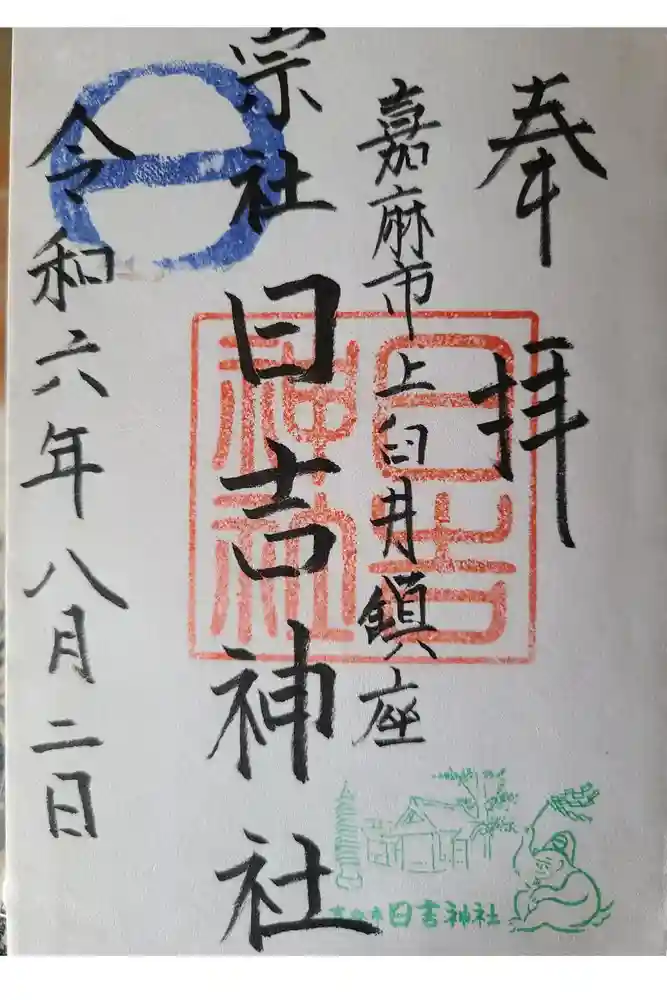 奉拝
嘉麻市上臼井鎮座
宗社 日吉神社
令和六年八月二日
日吉神社
日吉神社